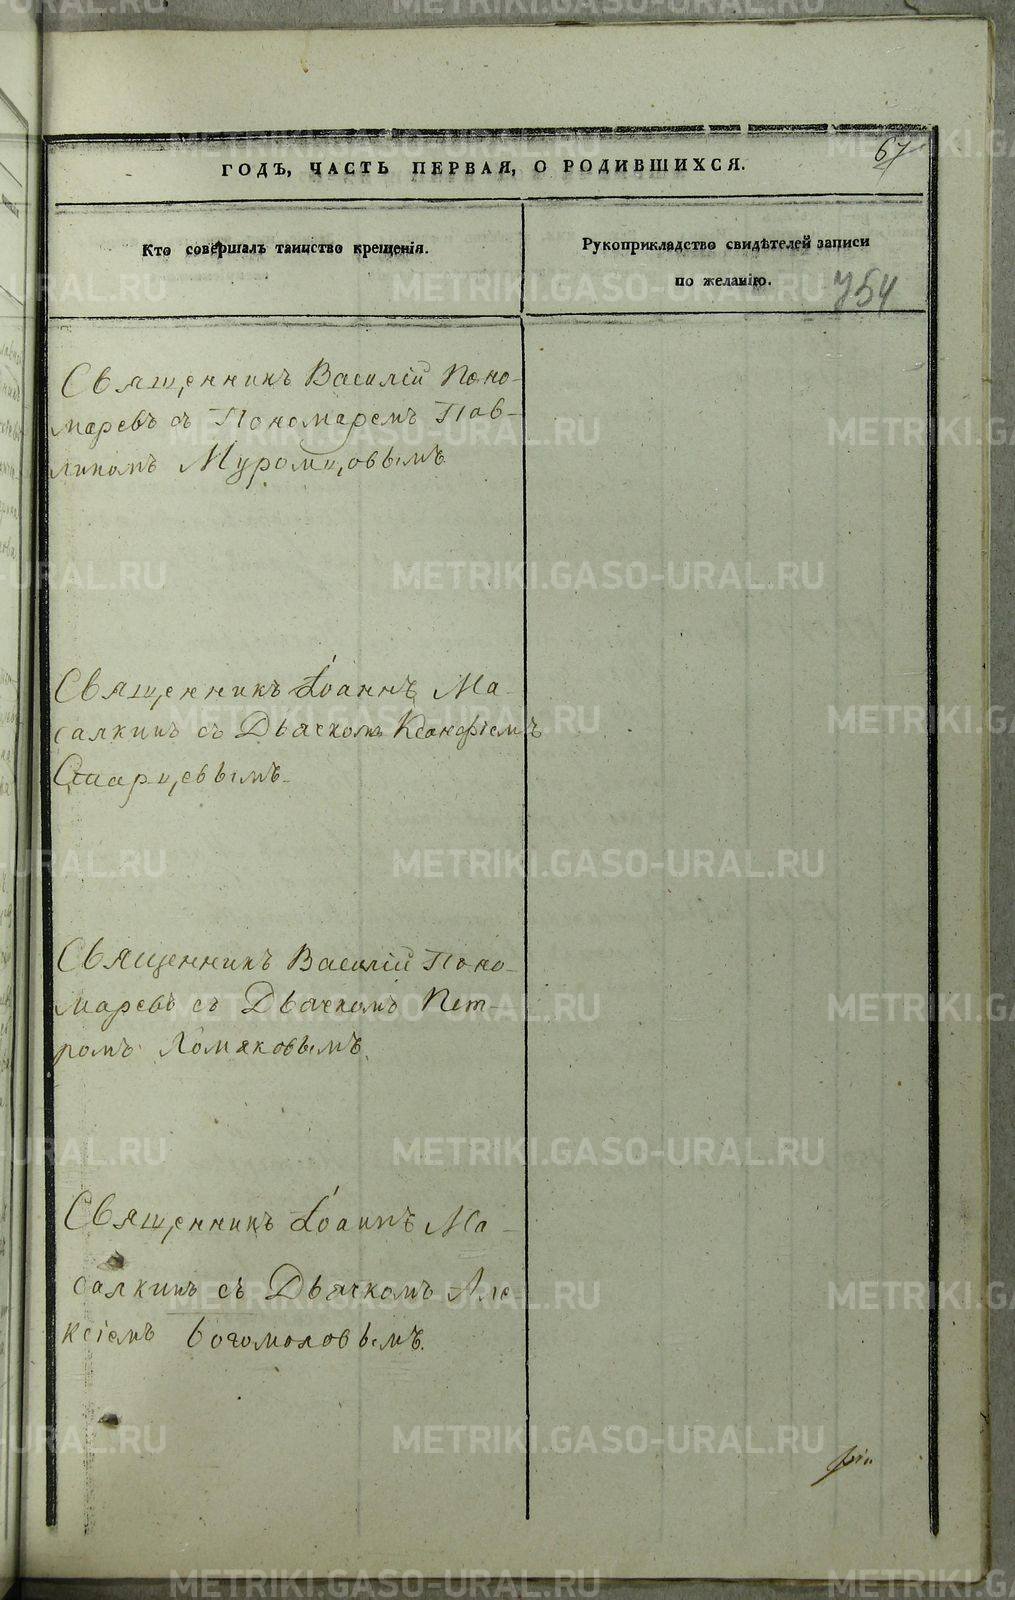 67
ГОДЪ, ЧАСТЬ ПЕРВАЯ, О РОДИВШИХСЯ.
Кто совершалъ таинство крещенія.
Рукоприкладство свидѣтелей записи
по желанію.
754
Священникъ Василій Поно-
маревъ съ Пономаремъ Пав-
линомъ Муромцовымъ
Священникъ Іоаннъ Ма-
салкинъ съ Дьячкомъ Ксанфіемъ
Старцевымъ.
Священникъ Василій Поно-
маревъ съ Дьячкомъ Пет-
ромъ Хомяковымъ.
Священникъ Іоаннъ Ма-
салкинъ съ Дьячкомъ Але-
ксіемъ Богомоловымъ.
METRIKI.GASO-URAL.RU